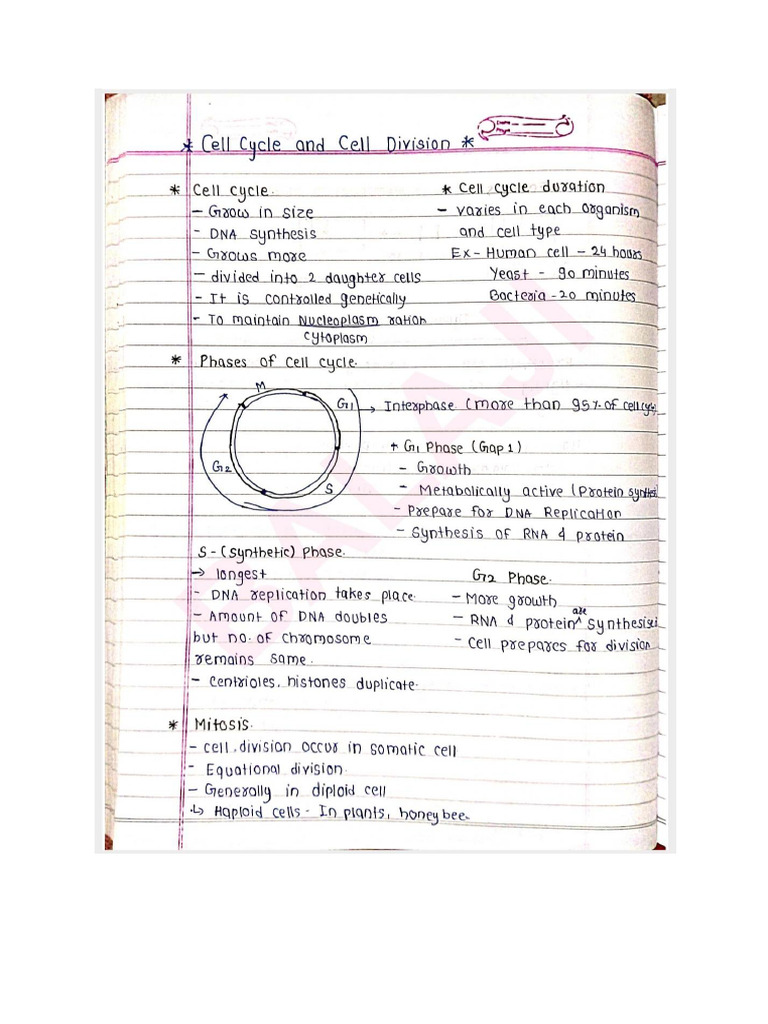 * Cell Cycle and Cell Division *
* Cell cycle.
- Grow in size
- DNA synthesis
- Grows more
- divided into 2 daughter cells
- It is controlled genetically
- To maintain Nucleoplasm ration
cytoplasm
* Cell cycle duration
- varies in each organism
and cell type
Ex - Human cell - 24 hours
Yeast - 90 minutes
Bacteria - 20 minutes
* Phases of cell cycle.
M
G1
G2
S
→ Interphase (more than 95% of cell cycle
+ G1 Phase (Gap 1)
- Growth
- Metabolically active (Protein synthesi
- Prepare for DNA Replication
- Synthesis of RNA & protein
S - (Synthetic) Phase.
→ longest
- DNA replication takes place.
- Amount of DNA doubles
but no. of chromosome
remains same.
- Centrioles, histones duplicate.
G2 Phase.
- More growth
- RNA & protein are synthesised
- Cell prepares for division
* Mitosis.
- cell division occur in somatic cell
- Equational division.
- Generally in diploid cell
↳ Haploid cells - In plants, honey bee.
BALAJI